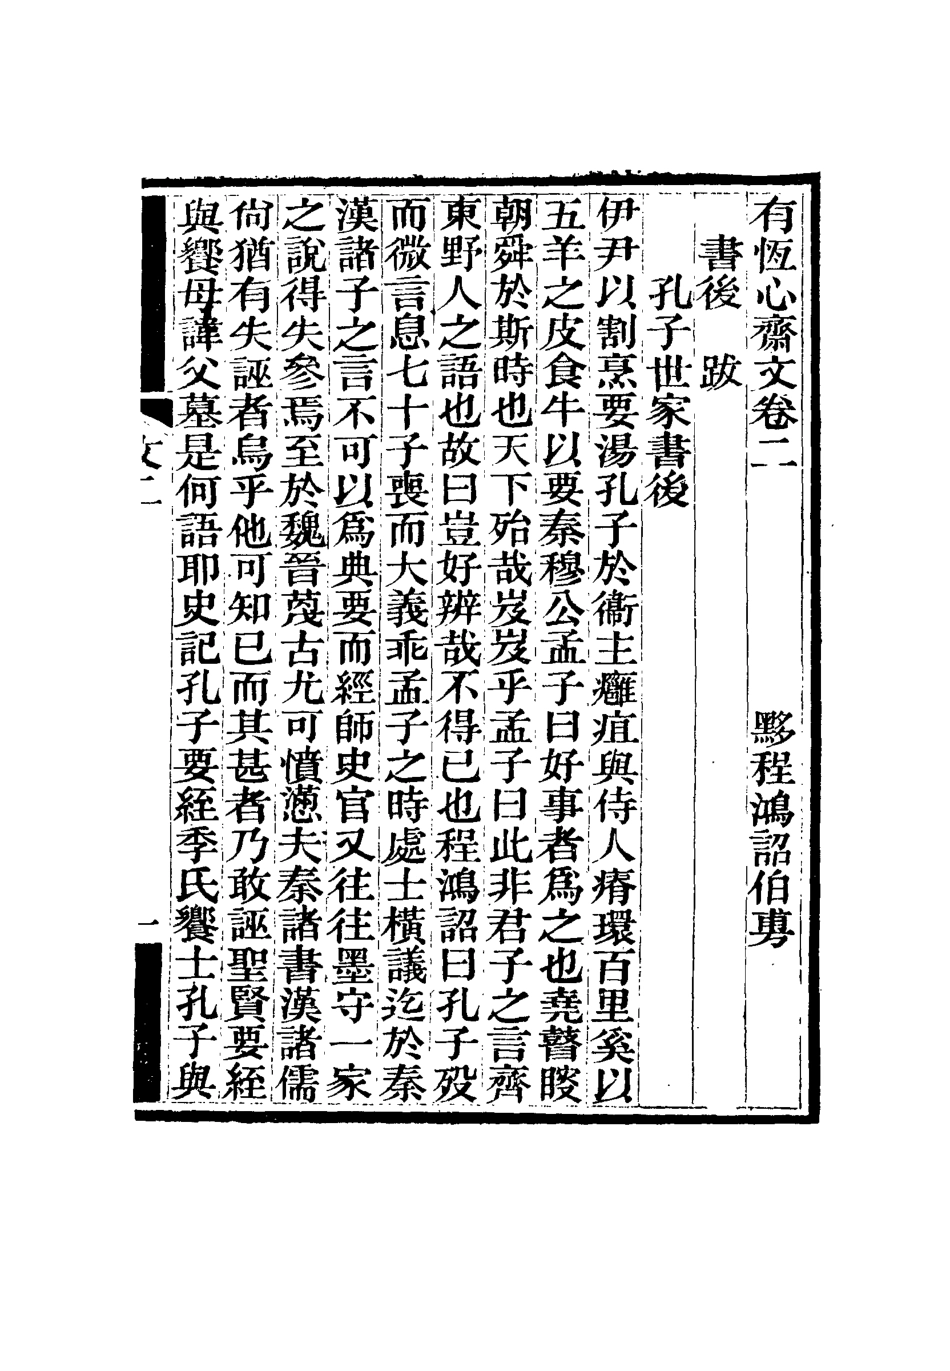 有恆心齋文卷二　黟程鴻詔伯旉
書後　跋
孔子世家書後
伊尹以割烹要湯孔子於衞主癰疽與侍人瘠環百里奚以
五羊之皮食牛以要秦穆公孟子曰好事者爲之也堯瞽瞍
朝舜於斯時也天下殆哉岌岌乎孟子曰此非君子之言齊
東野人之語也故曰豈好辨哉不得已也程鴻詔曰孔子歿
而微言息七十子喪而大義乖孟子之時處士橫議迄於秦
漢諸子之言不可以爲典要而經師史官又往往墨守一家
之說得失參焉至於魏晉蔑古尤可憤懑夫秦諸書漢諸儒
尙猶有失誣者烏乎他可知已而其甚者乃敢誣聖賢要絰
與饗母諱父墓是何語耶史記孔子要絰季氏饗士孔子與
文二
一